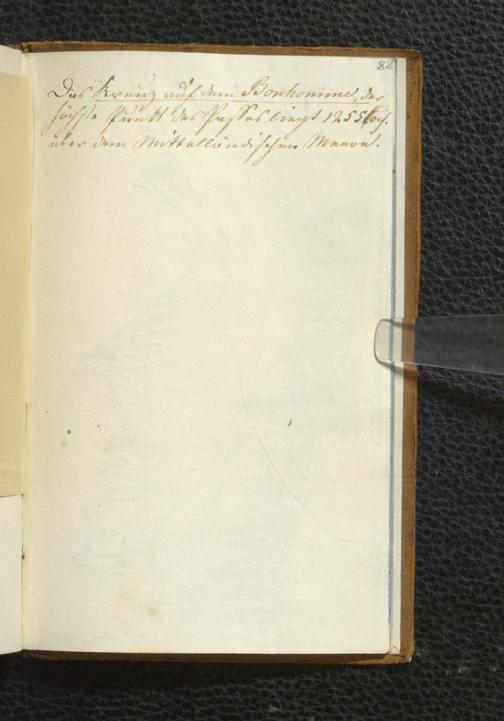 82
Das Kreuz auf dem Bonhomme, der
höchste Punkt des Passes liegt 1255
über dem Mittelländischen Meere.